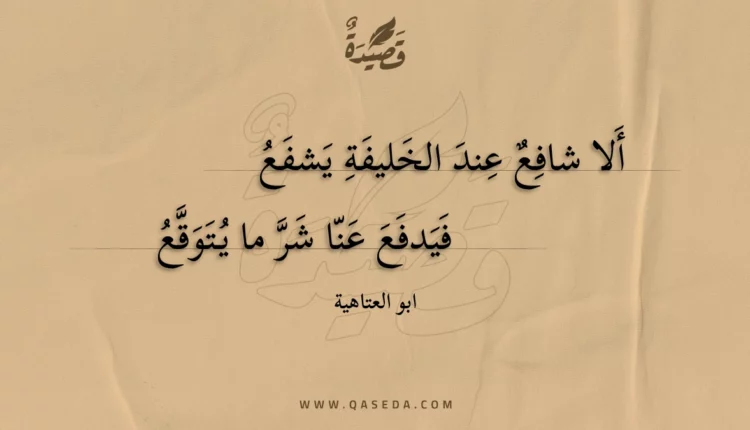 قَصِيْدَةٌ
أَلا شافِعٌ عِندَ الخَليفَةِ يَشفَعُ
فَيَدفَعَ عَنّا شَرَّ ما يُتَوَقَّعُ
ابو العتاهية
WWW.QASEDA.COM